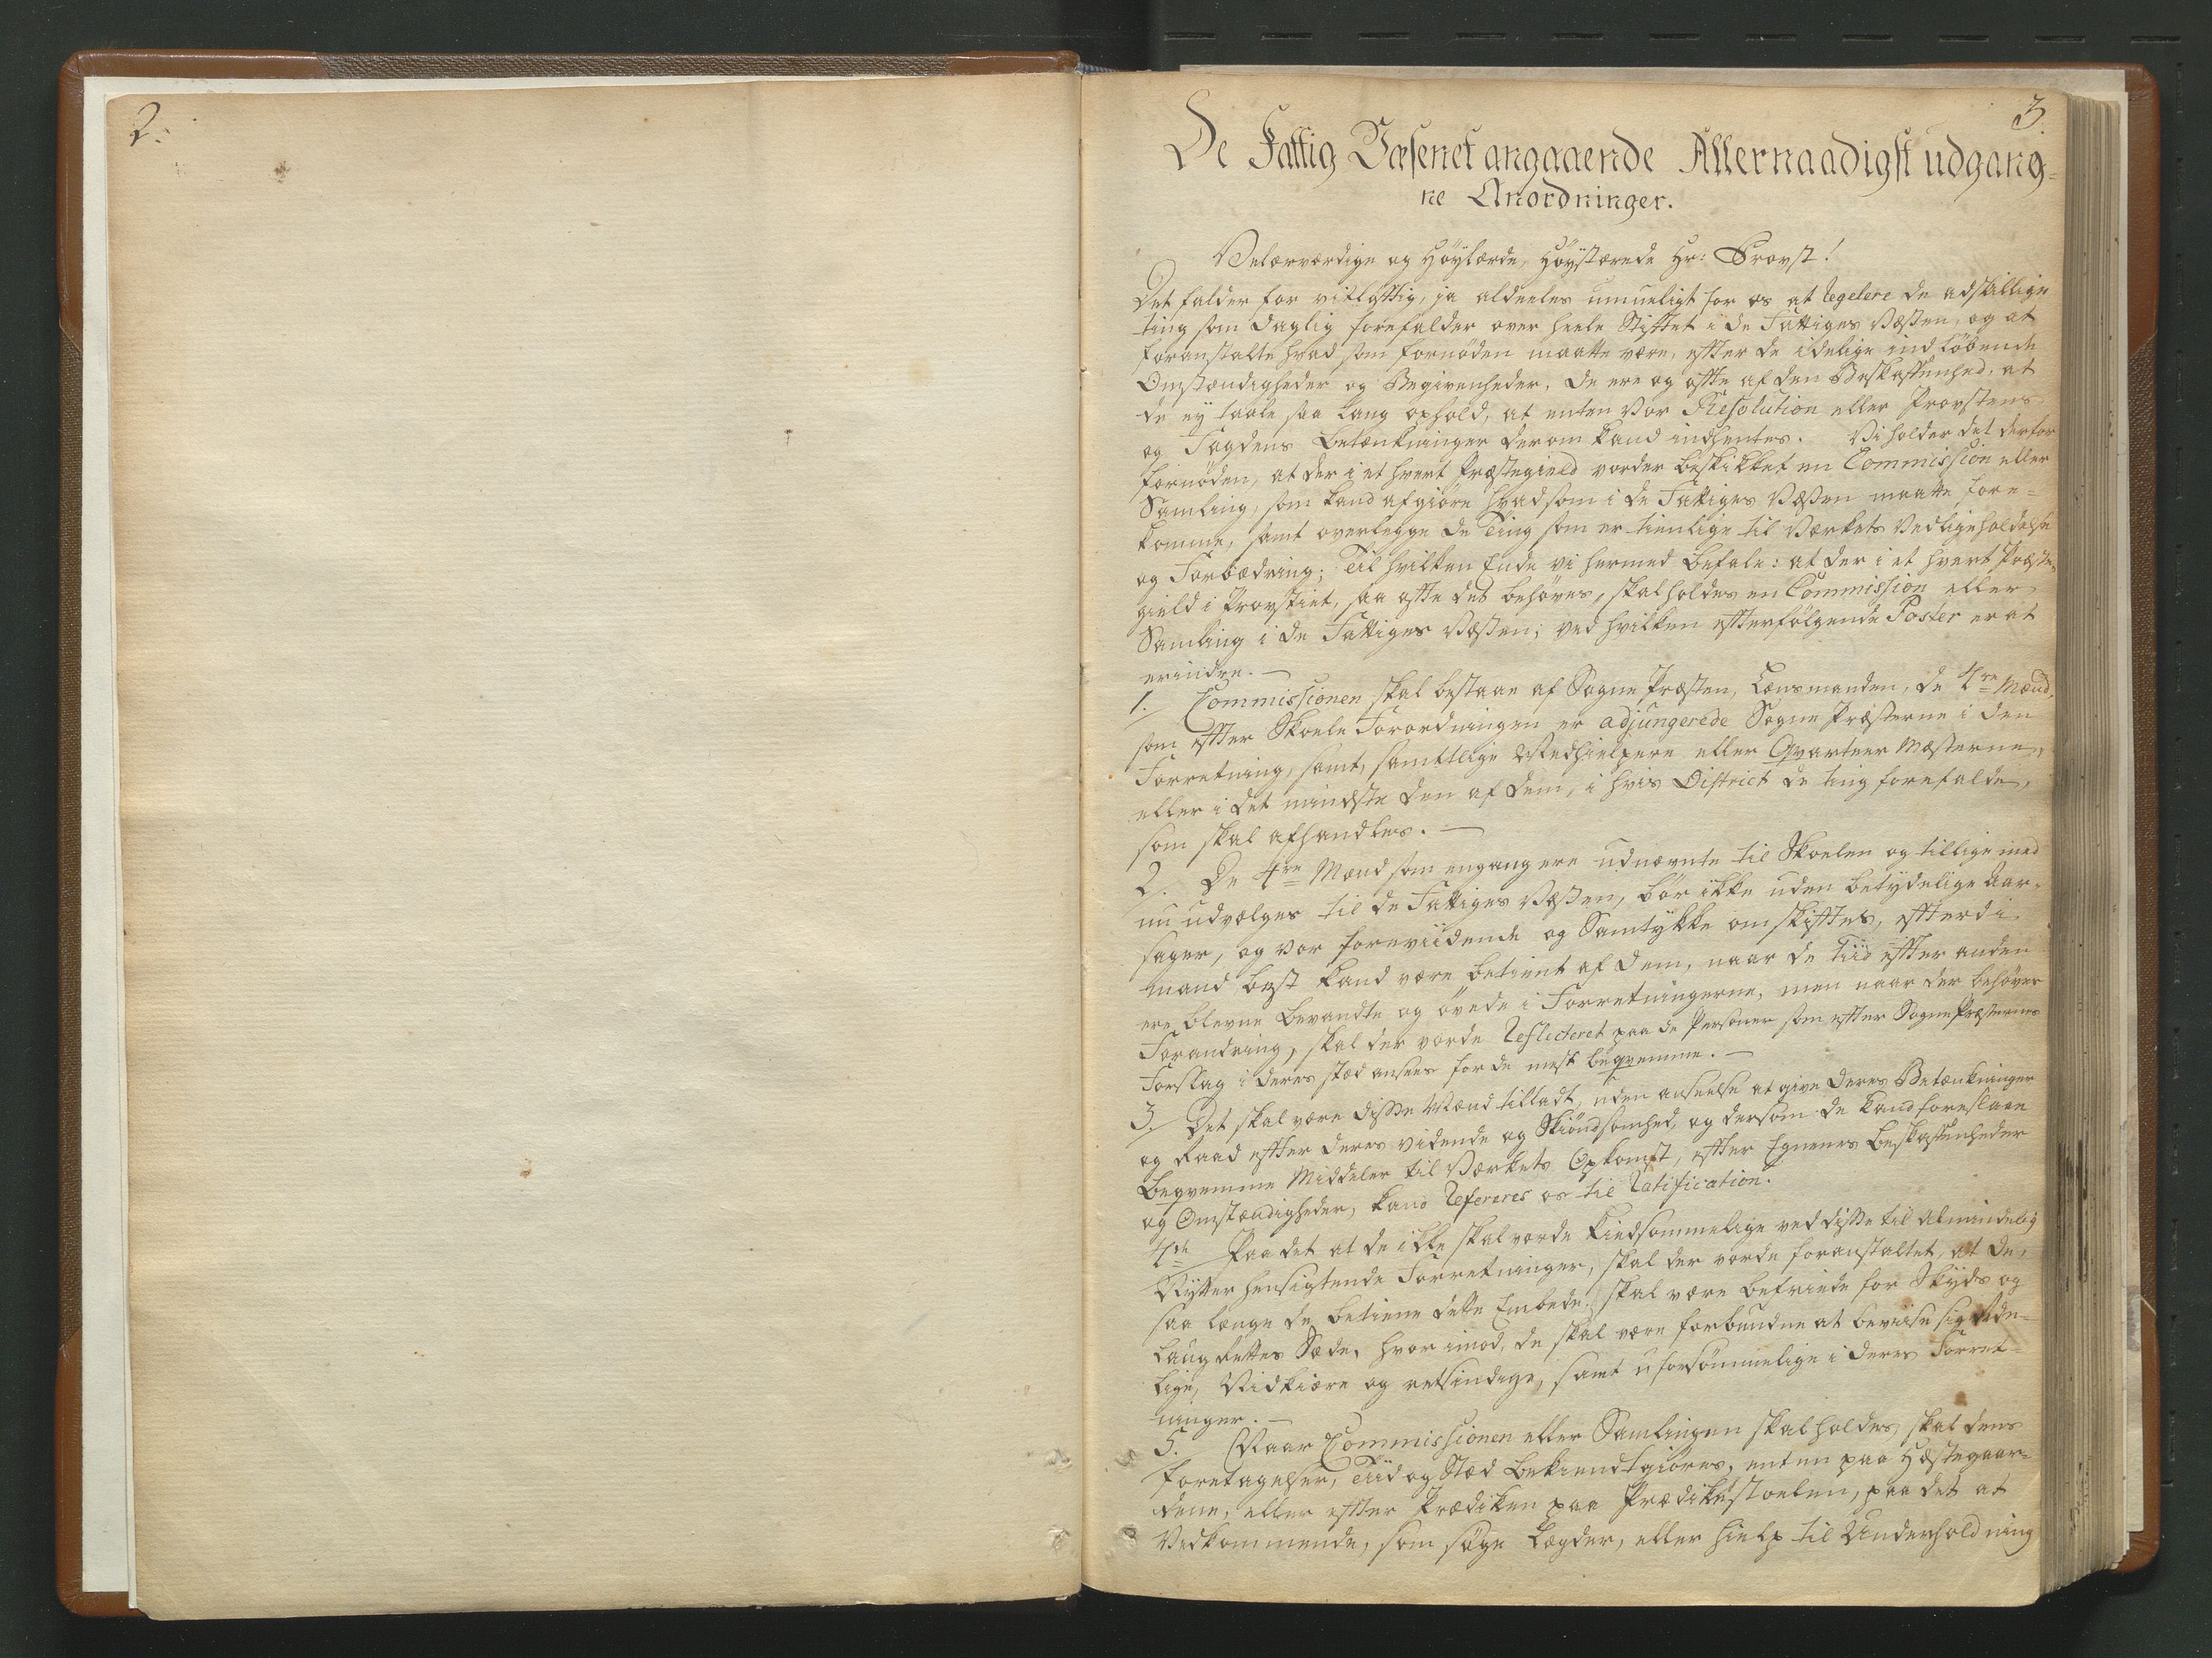 2.
3.
De Fattig Væsenet angaaende Allernaadigst udgang-
ne Anordninger.
Velærværdige og Høylærde, Høystærede Hr: Provst!
Det falder for vitløftig, ja aldeeles umueligt for os at regelere de adskillige
ting som daglig forefalder over heele Stiftet i de Fattiges Væsen, og at
foranstalte hvad som fornøden maatte være, efter de idelige indløbende
Omstændigheder og Begivenheder, de ere og ofte af den Beskaffenhed, at
de ey taale saa lang ophold, at enten Vor Resolution eller Provstens
og Fogdens betænkninger derom kand indhentes. Vi holder det derfor
fornøden, at der i et hvert Præstegield vorder beskikket en Commission eller
Samling, som kand afgiøre hvad som i de Fattiges Væsen maatte fore-
komme, samt overlegge de Ting som er tienlige til Værkets Vedligeholdelse
og Forbædring; Til hvilken Ende vi hermed befale: at der i et hvert Præste-
gield i Provstiet, saa ofte det behøves, skal holdes en Commission eller
Samling i de Fattiges Væsen; ved hvilken efterfølgende Poster er at
erindre.
1. Commissionen skal bestaae af Sogne Præsten, Lensmanden, de 4re Mænd,
som efter Skoele Forordningen er adjungerede Sogne Præsterne i den
Forretning, samt, samtlige Medhielpere eller Qvarteer Mæsterne,
eller i det mindste den af dem, i hvis District de ting forefalde,
som skal afhandles.
2. De 4re Mænd som engang ere udnævnte til Skoelen og tillige med
nu udvælges til de Fattiges Væsen, bør ikke uden betydelige Aar-
sager, og vor foreviidende og Samtykke omskiftes, efterdi
mand best kand være betient af dem, naar de Tiid efter anden
ere blevne bevandte og øvede i Forretningerne, men naar der behøves
Forandring, skal der vorde reflecteret paa de Personer som efter SognePræsternes
Forslag i deres stæd ansees for de mest beqvemme.
3. Det skal være disse Mænd tilladt, uden anseelse at give deres Betænkninger
og Raad efter deres vidende og Skiøndsomhed, og dersom de kand foreslaae
beqvemme Middeler til Værkets Opkomst, efter Egnenes beskaffenheder
og Omstændigheder, kand refereres os til ratification.
4de Paa det at de ikke skal vorde kiedsommelige ved disse til Almindelig
Nytte hensigtende Forretninger, skal der vorde foranstaltet, at de,
saa længe de betiene dette Embede, skal være befriede for Skyds og
Laugrettes Sæde, hvor imod, de skal være forbundne at beviise sig rede-
lige, Nidkiære og retsindige, samt uforsømmelige i deres Forret-
ninger.
5. Naar Commissionen eller Samlingen skal holdes, skal dens
foretagelser, Tiid og Stæd bekiendtgiøres, enten paa Hæstegaar-
dene, eller efter Prædiken paa Prædikestoelen, paa det at
Vedkommende, som søge Lægder, eller hielp til Underholdning